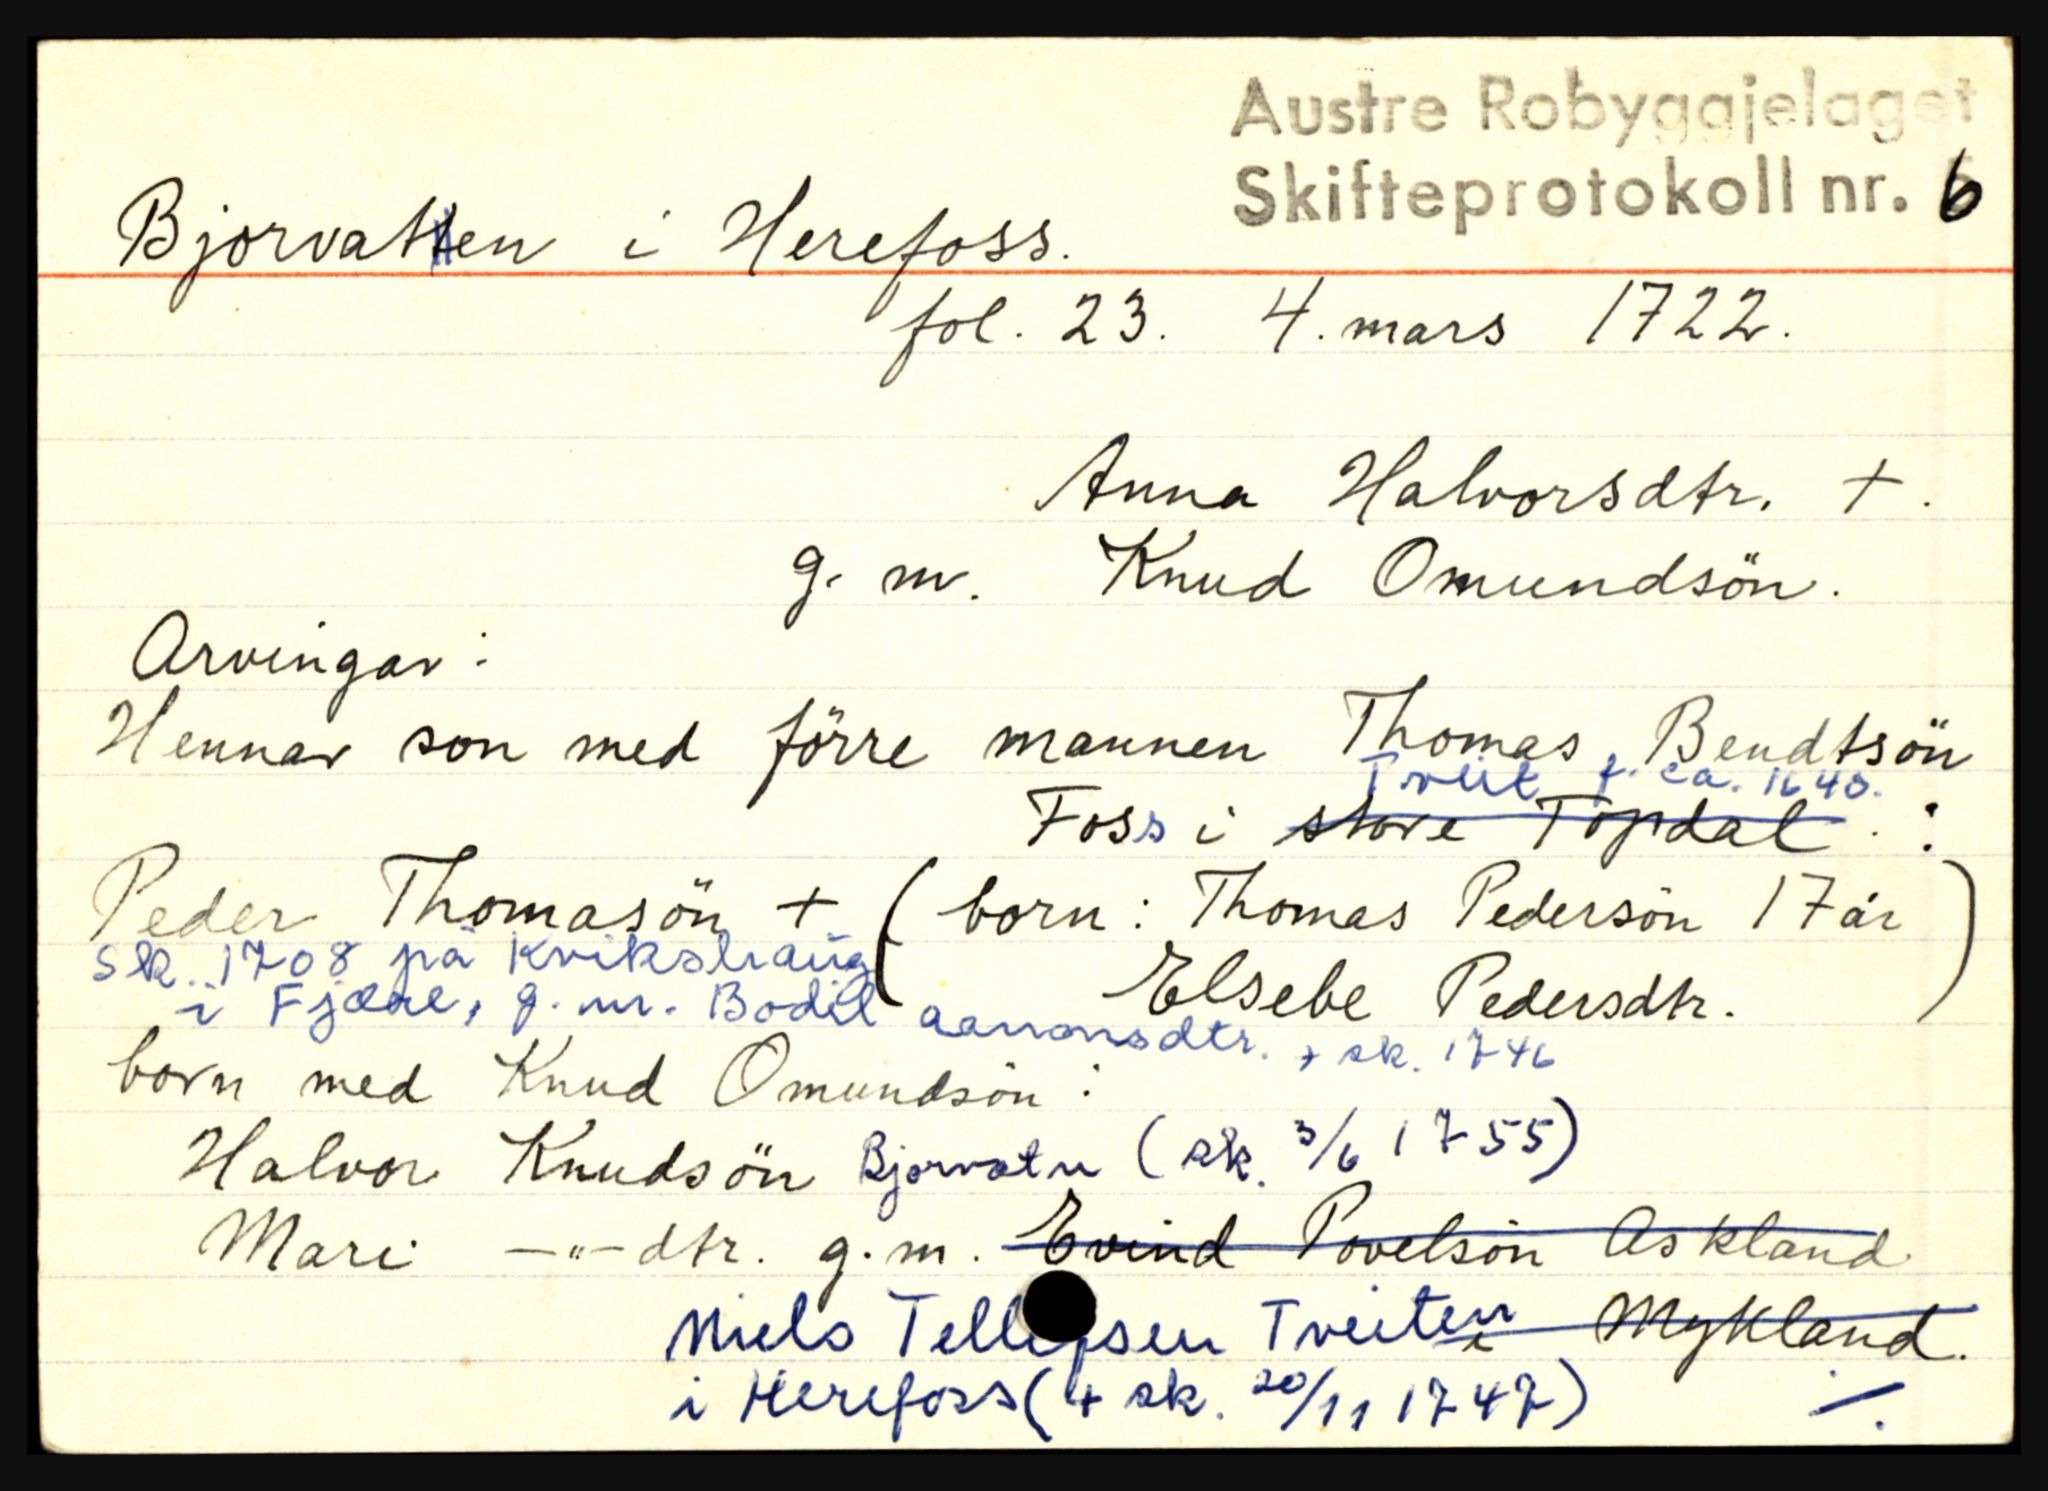 Austre Robyggjelaget
Skifteprotokoll nr. 6
Bjorvatten i Herefoss.
fol. 23. 4. mars 1722.
Anna Halvorsdtr. +.
g. m. Knud Omundsön.
Arvingar:
Hennar son med förre mannen Thomas Bendtsön
Tveit f. ca. 1640.
Foss i store Topdal . :
Peder Thomasön + ( born: Thomas Pedersön 17 år )
sk. 1708 på Kvikshaug
Elsebe Pedersdtr.
i Fjære, g. m. Bodil Aanonsdtr. + sk. 1746
born med Knud Omundsön:
Halvor Knudsön Bjorvatn (sk. 3/6 1755)
Mari —"— dtr. g. m. Evind Povelsön Askland
Niels Tellefsen Tveiten i Mykland.
i Herefoss (+ sk. 20/11 1747) ./.